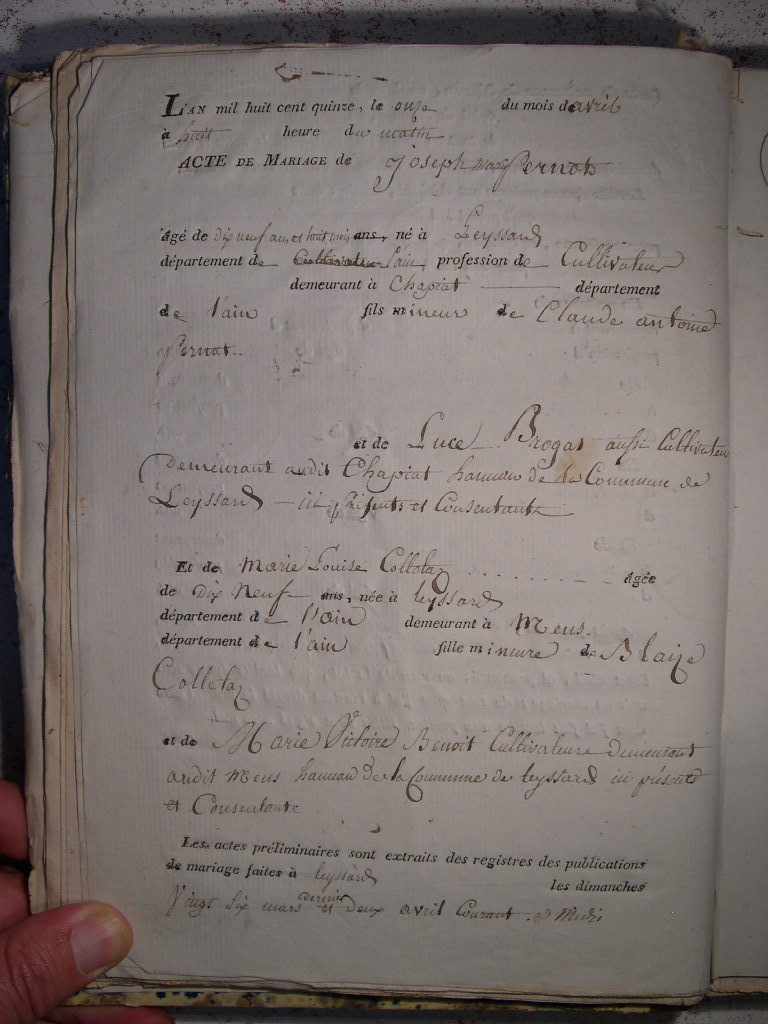 L'AN mil huit cent quinze, le onze du mois d'avril
à huit heure du matin
ACTE DE MARIAGE de Joseph Mary Pernot
âgé de dix neuf ans et huit mois ans, né à Leyssard
département de Cultivateur l'ain, profession de Cultivateur
demeurant à Chapiat département
de l'ain fils mineur de Claude antoine
Pernat.
et de Luce Brogat aussi Cultivateur
demeurant audit Chapiat hameau de la Commune de
Leyssard ici présents et Consentants
Et de marie Louise Colletaz âgée
de Dix Neuf ans, née à leyssard
département de l'ain demeurant à Mens
département de l'ain fille mineure de Blaize
Colletaz
et de Marie Victoire Benoit Cultivateurs demeurant
audit Mens hameau de la Commune de leyssard ici présents
et Consentants
Les actes préliminaires sont extraits des registres des publications
de mariage faites à leyssard les dimanches
Vingt six mars dernier et deux avril Courant. à Midi